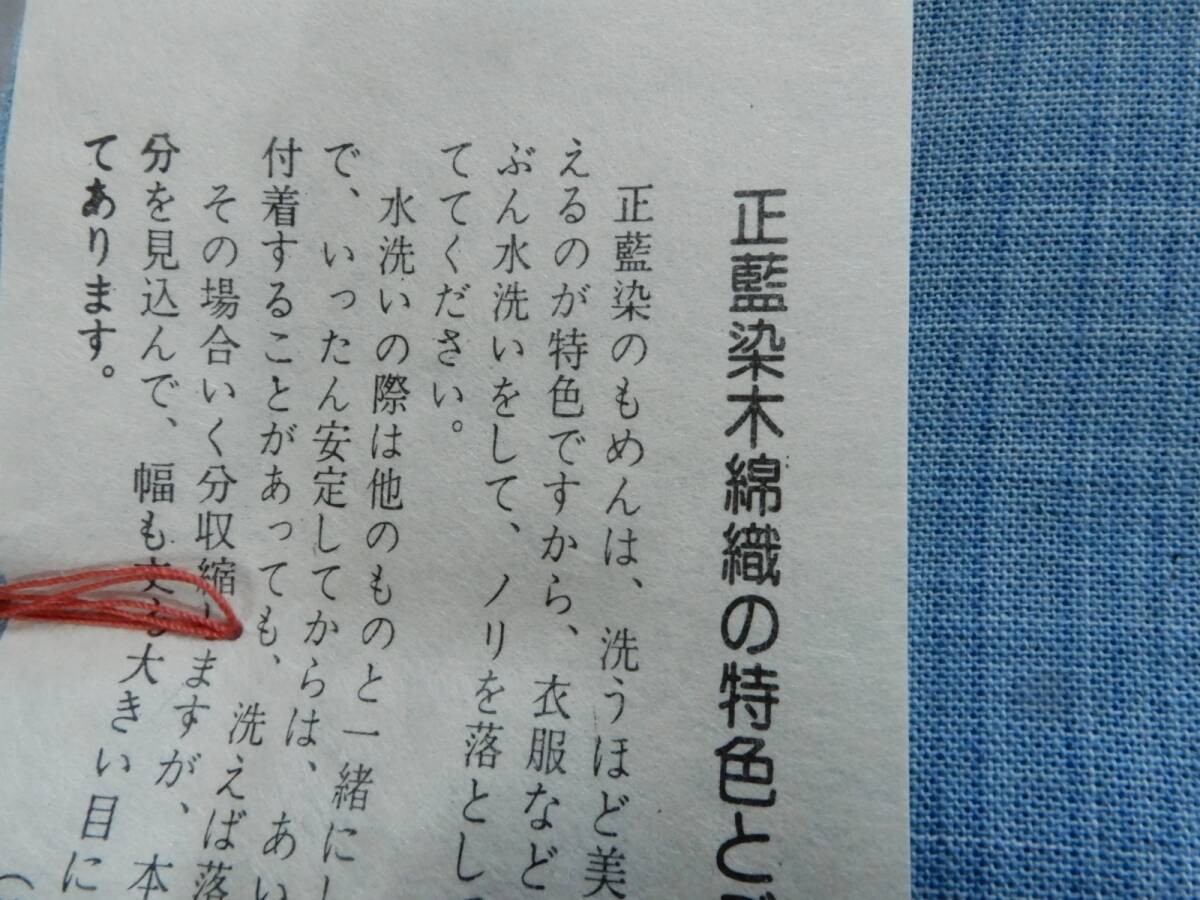 正藍染木綿織の特色と
正藍染のもめんは、洗うほど美
えるのが特色ですから、衣服など
ぶん水洗いをして、ノリを落とし
てください。
水洗いの際は他のものと一緒にし
で、いったん安定してからは、あい
付着することがあっても、洗えば落
その場合いく分収縮しますが、本
分を見込んで、幅も丈も大きい目に
てあります。